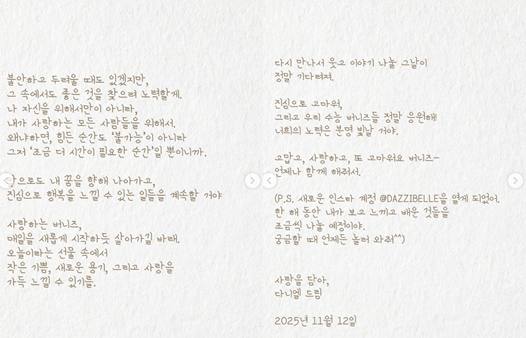 불안하고 두려울 때도 있겠지만,
그 속에서도 좋은 것을 찾으려 노력할게.
나 자신을 위해서만이 아니라,
내가 사랑하는 모든 사람들을 위해서.
왜냐하면, 힘든 순간도 '불가능'이 아니라
그저 '조금 더 시간이 필요한 순간'일 뿐이니까.
앞으로도 내 꿈을 향해 나아가고,
진심으로 행복을 느낄 수 있는 일들을 계속할 거야
사랑하는 버니즈,
매일을 새롭게 시작하듯 살아가길 바래.
오늘이라는 선물 속에서
작은 기쁨, 새로운 용기, 그리고 사랑을
가득 느낄 수 있기를.
다시 만나서 웃고 이야기 나눌 그날이
정말 기다려져.
진심으로 고마워,
그리고 우리 수능 버니즈들 정말 응원해
너희의 노력은 분명 빛날 거야.
고맙고, 사랑하고, 또 고마워요 버니즈-
언제나 함께 해줘서.
(P.S. 새로운 인스타 계정 @DAZZIBELLE을 열게 되었어.
한 해 동안 내가 보고 느끼고 배운 것들을
조금씩 나눌 예정이야.
궁금할 때 언제든 놀러 와줘^^)
사랑을 담아,
다니엘 드림
2025년 11월 12일